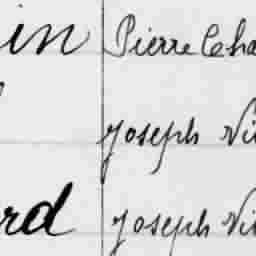 in Pierre Cha
Joseph Vi
rd Joseph Vi